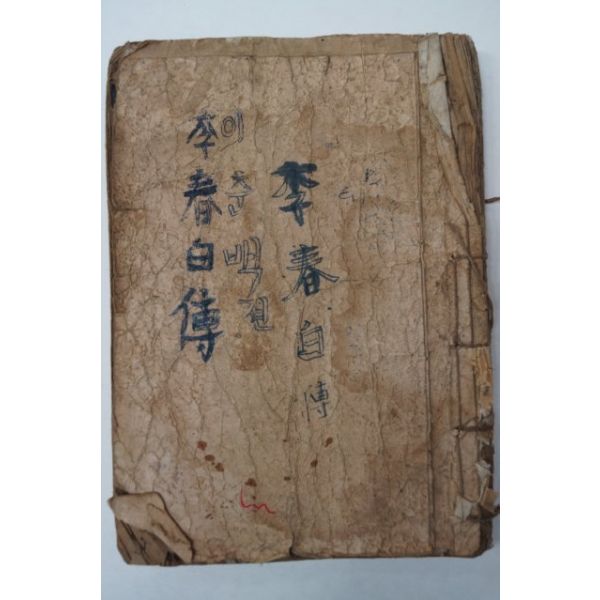 李春白傳
이춘백젼
李春白傳